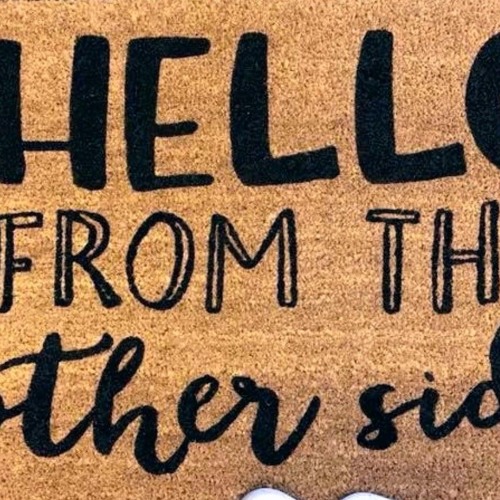 HELLO
FROM TH
other sid